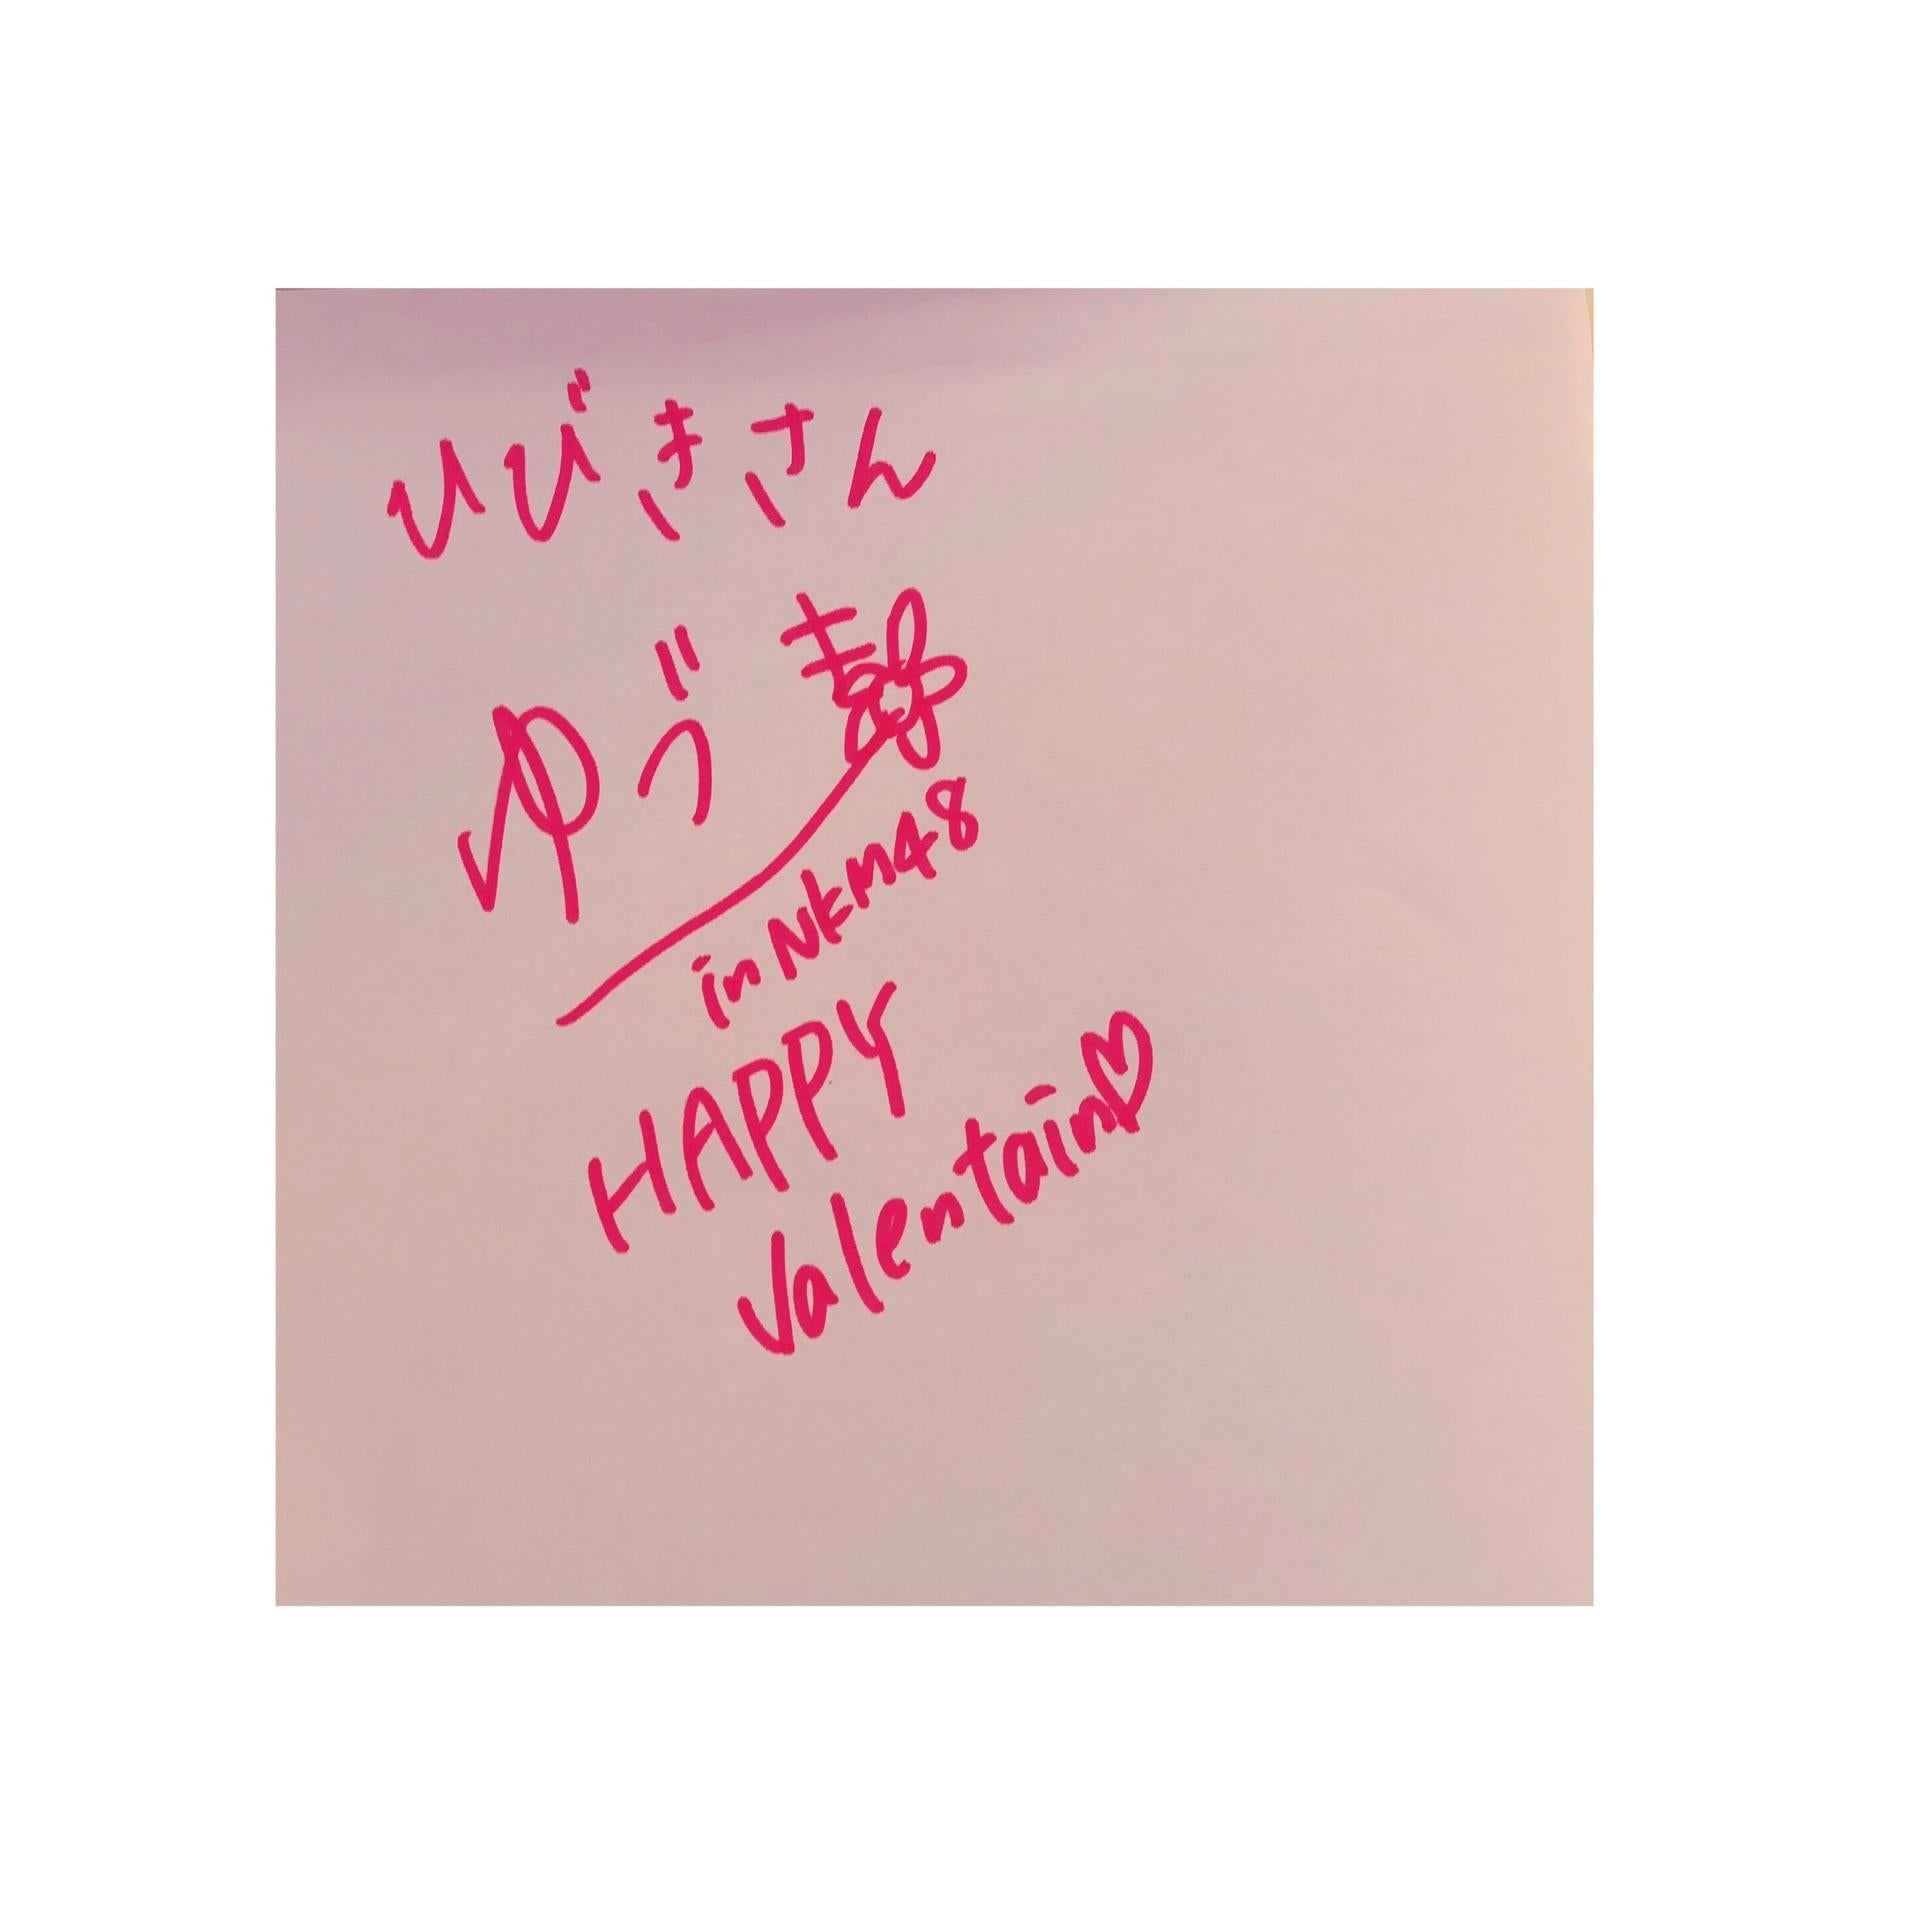 ひびきさん
ゆづき
in NKM48
HAPPY
Valentain♡